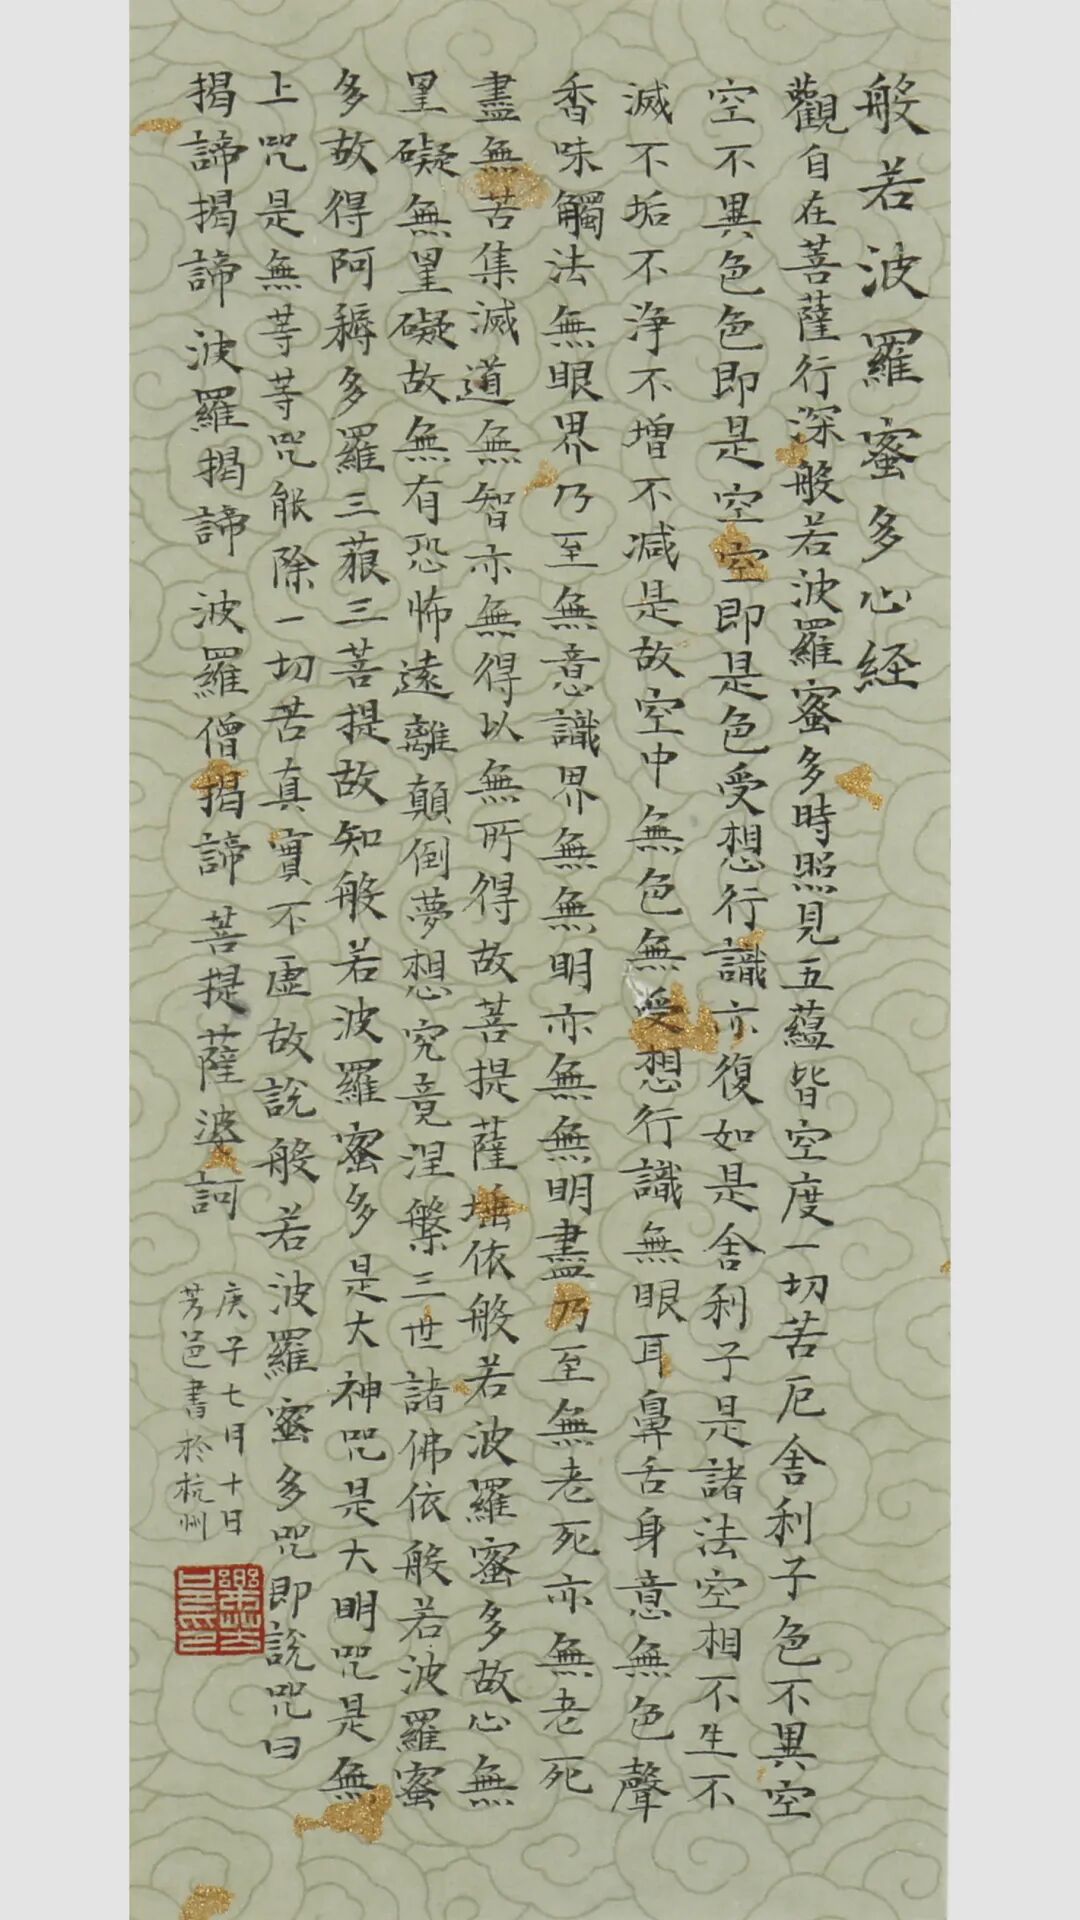 般若波羅蜜多心経
觀自在菩薩行深般若波羅蜜多時照見五蘊皆空度一切苦厄舍利子色不異空
空不異色色即是空空即是色受想行識亦復如是舍利子是諸法空相不生不
滅不垢不淨不增不減是故空中無色無受想行識無眼耳鼻舌身意無色聲
香味觸法無眼界乃至無意識界無無明亦無無明盡乃至無老死亦無老死
盡無苦集滅道無智亦無得以無所得故菩提薩埵依般若波羅蜜多故心無
罣礙無罣礙故無有恐怖遠離顛倒夢想究竟涅槃三世諸佛依般若波羅蜜
多故得阿耨多羅三藐三菩提故知般若波羅蜜多是大神咒是大明咒是無
上咒是無等等咒能除一切苦真實不虛故說般若波羅蜜多咒即說咒曰
揭諦揭諦波羅揭諦波羅僧揭諦菩提薩婆訶
庚子七月十日
芳邑書於杭州